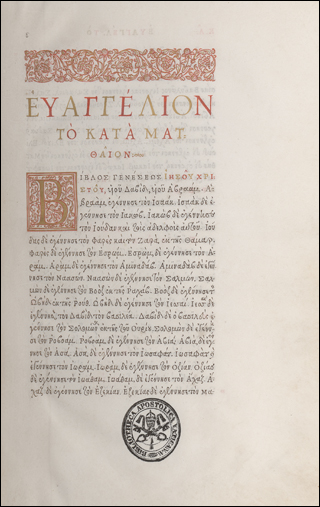 ΕΥΑΓΓΈΛΙΟΝ
ΤῸ ΚΑΤᾺ ΜΑΤ-
ΘΑΙΟΝ.
ΒΊΒΛΟΣ ΓΕΝΈΣΕΩΣ ΙΗΣΟΥ ΧΡΙ
ΣΤΟΥ͂, υἱοῦ Δαβὶδ, υἱοῦ Ἀβραάμ. Ἀ-
βραὰμ ἐγέννησε τὸν Ἰσαάκ. Ἰσαὰκ δὲ ἐ-
γέννησε τὸν Ἰακώβ. Ἰακὼβ δὲ ἐγέννησε
τὸν Ἰούδαν καὶ τοὺς ἀδελφοὺς αὐτοῦ. Ἰού
δας δὲ ἐγέννησε τὸν Φαρὲς καὶ τὸν Ζαρὰ, ἐκ τῆς Θάμαρ.
Φαρὲς δὲ ἐγέννησε τὸν Ἐσρώμ. Ἐσρὼμ, δὲ ἐγέννησε τὸν Ἀ-
ράμ. Ἀρὰμ, δὲ ἐγέννησε τὸν Ἀμιναδάβ. Ἀμιναδὰβ δὲ ἐγέν
νησε τὸν Ναασών. Ναασὼν δὲ ἐγέννησε τὸν Σαλμών. Σαλ
μὼν δὲ ἐγέννησε τὸν Βοὸζ ἐκ τῆς Ῥαχάβ. Βοὸζ δὲ ἐγέννησε
Ὠβὴδ ἐκ τῆς Ῥούθ. Ὠβὴδ δὲ ἐγέννησε τὸν
ἐγέννησε, τὸν Δαβίδ τὸν βασιλέα. Δαβὶδ δὲ ὁ βασιλεὺς ἐ
γέννησε τὸν Σολομῶντα ἐκ τῆς τοῦ Οὐρίου. Σολομὼν δὲ ἐγέννη
σε τὸν Ῥοβοάμ. Ῥοβοὰμ, δὲ ἐγέννησε τὸν Ἀβιά. Ἀβιὰ, δὲ ἐγέν
νησε τὸν Ἀσά. Ἀσὰ, δὲ ἐγέννησε τὸν Ἰωσαφάτ. Ἰωσαφὰτ δὲ
ἐγέννησε τὸν Ἰωράμ. Ἰωρὰμ, δὲ ἐγέννησε τὸν Ὀζίαν. Ὀζίας
δὲ ἐγέννησε τὸν Ἰωάθαμ. Ἰωάθαμ, δὲ ἐγέννησε τὸν Ἄχαζ. Ἄ
χαζ δὲ ἐγέννησε τὸν Ἐζεκίαν. Ἐζεκίας δὲ ἐγέννησε τὸν Μα-
BIBLIOTHECA APOSTOLICA VATICANA